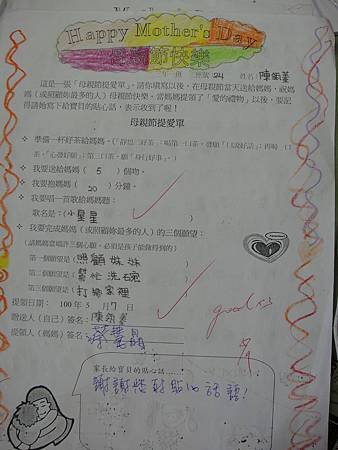 Happy Mother's Day
母親節快樂
年 班 座號:24 姓名:陳
這是一張「母親節提愛單」,請你填寫以後,在母親節當天送給媽媽,祝媽
媽(或照顧妳最多的人)母親節快樂。當媽媽提領了「愛的禮物」以後,要記
得請她寫下給寶貝的貼心話,表示收到了喔!
母親節提愛單
準備一杯好茶給媽媽。(「靜思」好茶:喝第一口茶,願「口說好話」;再喝一口
茶,「心發好願」;第三口茶,願「身行好事」。)
我要送給媽媽( 5 )個吻。
我要抱媽媽( 20 )分鐘。
我要唱一首歌給媽媽聽:
歌名是:(小星星
我要完成媽媽(或照顧妳最多的人)的三個願望:
(請媽媽當場許三個心願,必須是孩子能做得到的)
第一個願望是(照顧妹妹
第二個願望是(幫忙洗碗
第三個願望是(打掃家裡
提領日期: 100年 5 月 7 日
贈送人(自己)簽名:陳
提領人(媽媽)簽名:
good
家長給寶貝的貼心話……
謝謝 貼心話語!